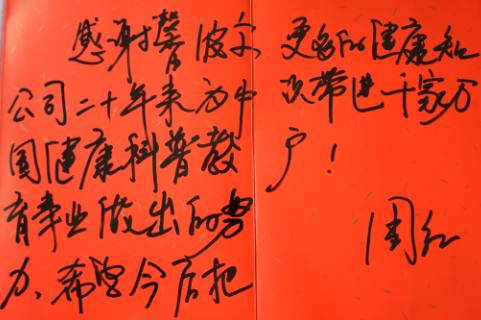 感谢馨波尔
公司二十年来为中
国健康科普教
育事业做出的努
力、希望今后把
更多的健康知
识带进千家万
户！
周红